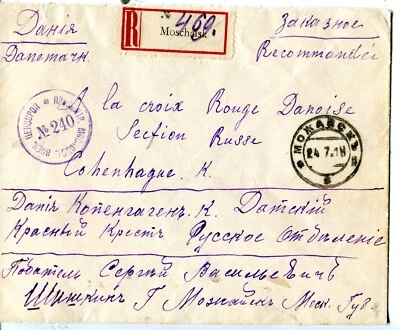 Данія
Danemark.
R
№ 469.
Moschaisk
Заказное
Recommandée
№ 240
A la croix Rouge Danoise
Section Russe
Cohenhague. K.
МОЖАЙСКЪ
24 7.18
Данія Копенгагенъ. К. Датскій
Красный Крестъ Русское Отдѣленіе
Податель Сергѣй Васильевичъ
Шишкинъ Г Можайскъ Моск. Губ.